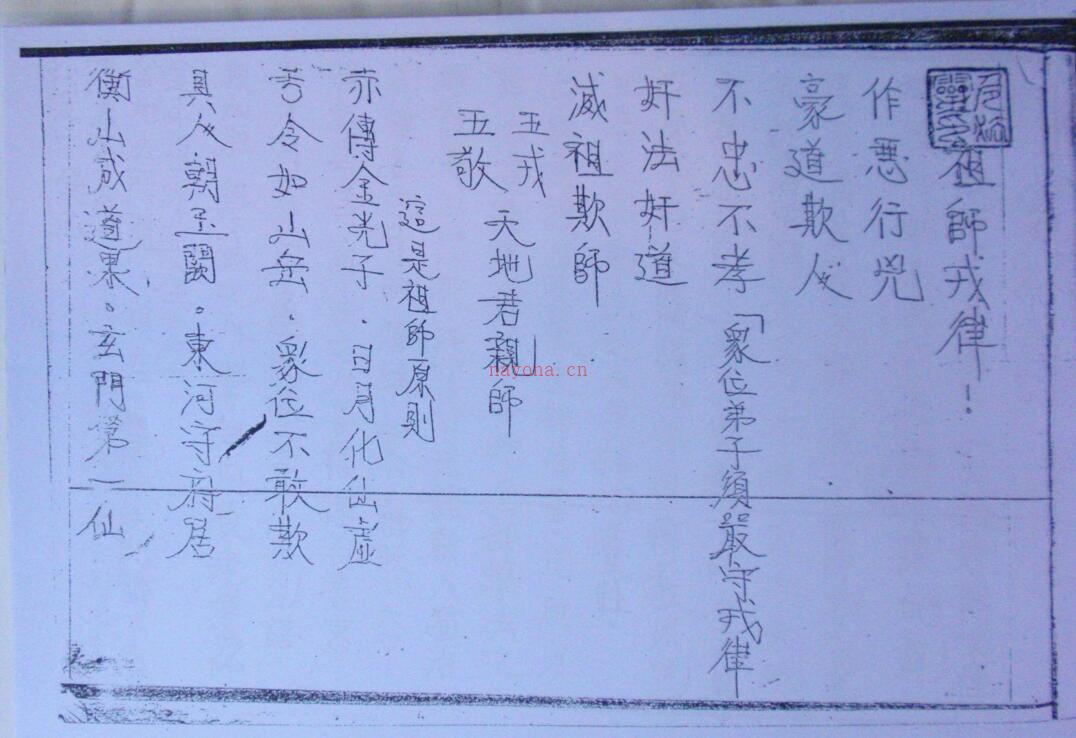 祖師戎律！
作惡行兇
豪道欺人
不忠不孝「眾位弟子須嚴守戎律
奸法奸道
滅祖欺師
五戎
五敬
天地君親師
這是祖師原則
亦傳金光子．日月化仙虛
令如山岳．眾位不敢欺
真人朝玉闕。東河守府居
衡山成道果。玄門第一仙
nayona.cn